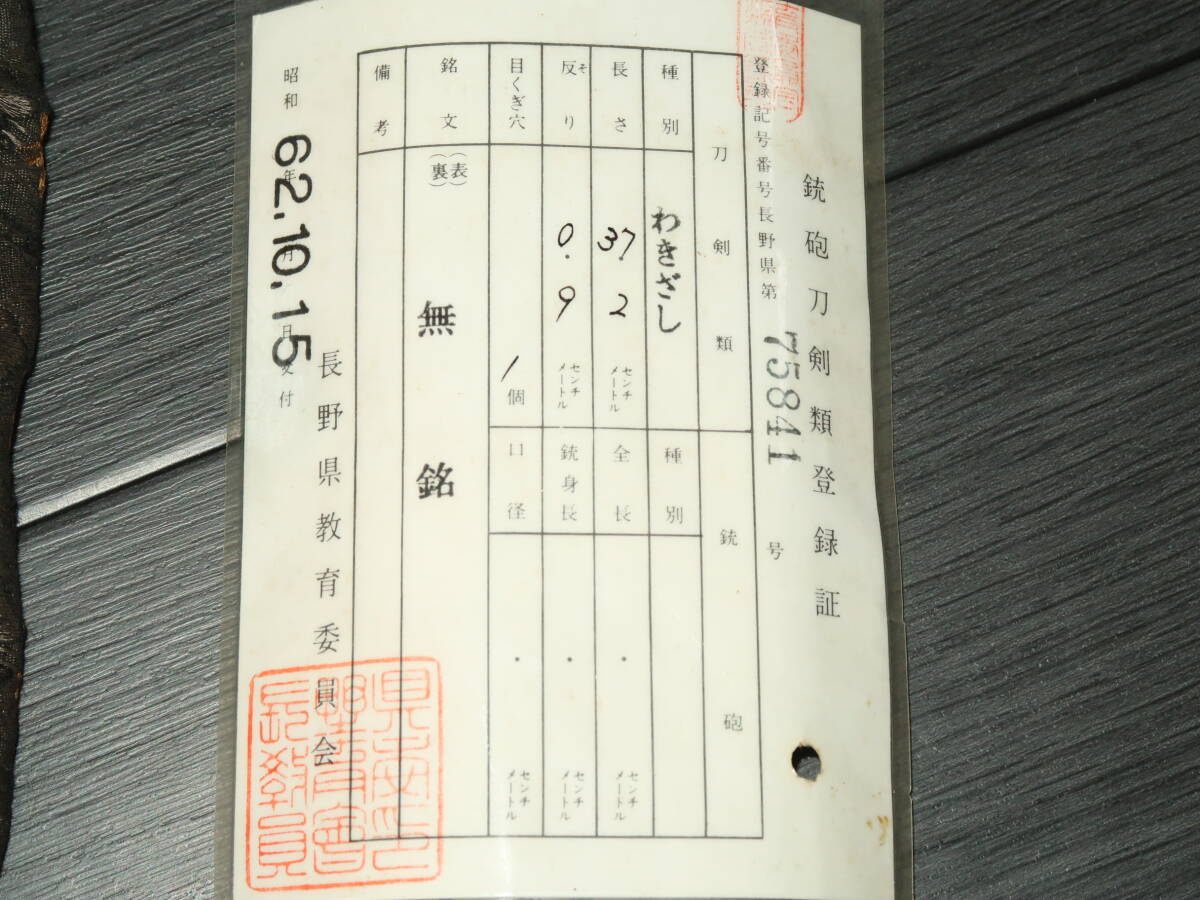 銃砲刀剣類登録証
登録記号番号長野県第 75841 号
刀剣類
種別 わきざし
長さ 37.2 センチメートル
反り そ 0.9 センチメートル
目くぎ穴 1個
銘文 (表) (裏) 無銘
備考
銃砲
種別
全長 . センチメートル
銃身長 . センチメートル
口径 . センチメートル
昭和 62年10月15日交付
長野県教育委員会